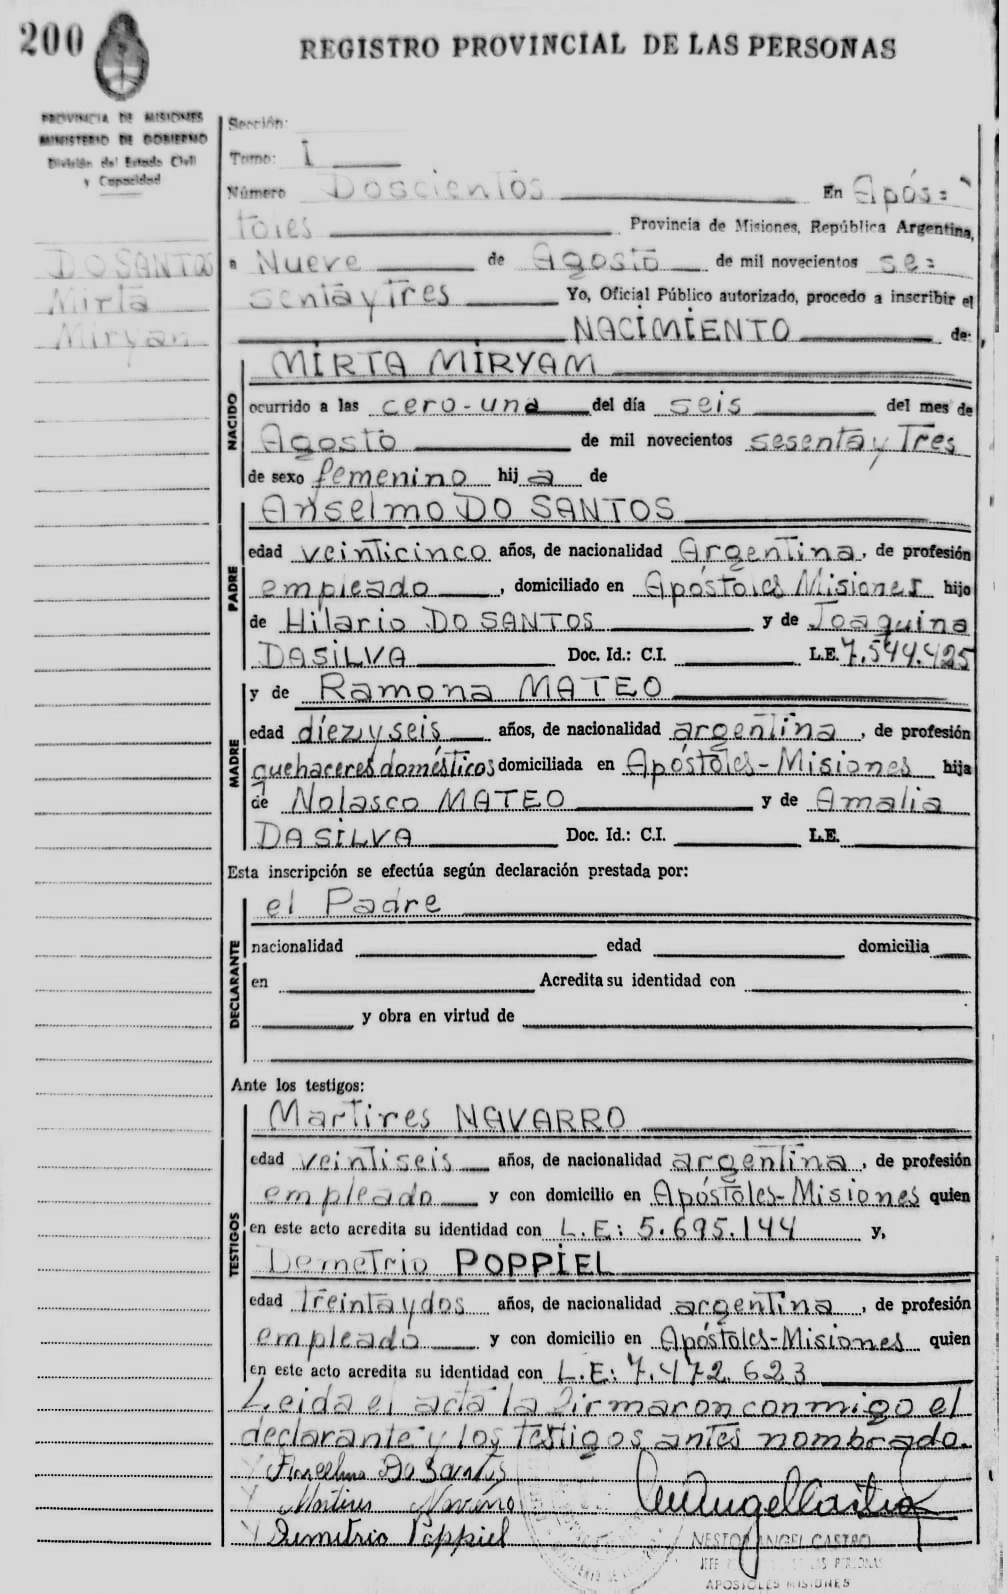 200
REGISTRO PROVINCIAL DE LAS PERSONAS
PROVINCIA DE MISIONES
MINISTERIO DE GOBIERNO
División del Estado Civil
y Capacidad
DO SANTOS
Mirta
Miryan
Sección:
Tomo: I
Número Doscientos En Após=
toles Provincia de Misiones, República Argentina,
a Nueve de Agosto de mil novecientos se=
senta y Tres Yo, Oficial Público autorizado, procedo a inscribir el
NACIMIENTO de:
NACIDO
MIRTA MIRYAM
ocurrido a las cero-una del día seis del mes de
Agosto de mil novecientos sesenta y Tres
de sexo femenino hija de
PADRE
Anselmo DO SANTOS
edad veinticinco años, de nacionalidad Argentina, de profesión
empleado, domiciliado en Apóstoles Misiones hijo
de Hilario DO SANTOS y de Joaquina
DASILVA Doc. Id.: C.I. L.E. 7.544.425
MADRE
y de Ramona MATEO
edad díez y seis años, de nacionalidad argentina, de profesión
quehaceres domésticos domiciliada en Apóstoles-Misiones hija
de Nolasco MATEO y de Amalia
DASILVA Doc. Id.: C.I. L.E.
Esta inscripción se efectúa según declaración prestada por:
DECLARANTE
el Padre
nacionalidad edad domicilia
en Acredita su identidad con
y obra en virtud de
Ante los testigos:
TESTIGOS
Martires NAVARRO
edad veintiseis años, de nacionalidad argentina, de profesión
empleado y con domicilio en Apóstoles-Misiones quien
en este acto acredita su identidad con L.E: 5.695.144 y,
Demetrio POPPIEL
edad treinta y dos años, de nacionalidad argentina, de profesión
empleado y con domicilio en Apóstoles-Misiones quien
en este acto acredita su identidad con L.E: 7.472.623
Leida el acta la firmaron conmigo el
declarante y los testigos antes nombrado.
Anselmo Do Santos
Martires Navarro
Demetrio Poppiel
NESTOR ANGEL CASTRO
JEFE LAS PERSONAS
APOSTOLES MISIONES